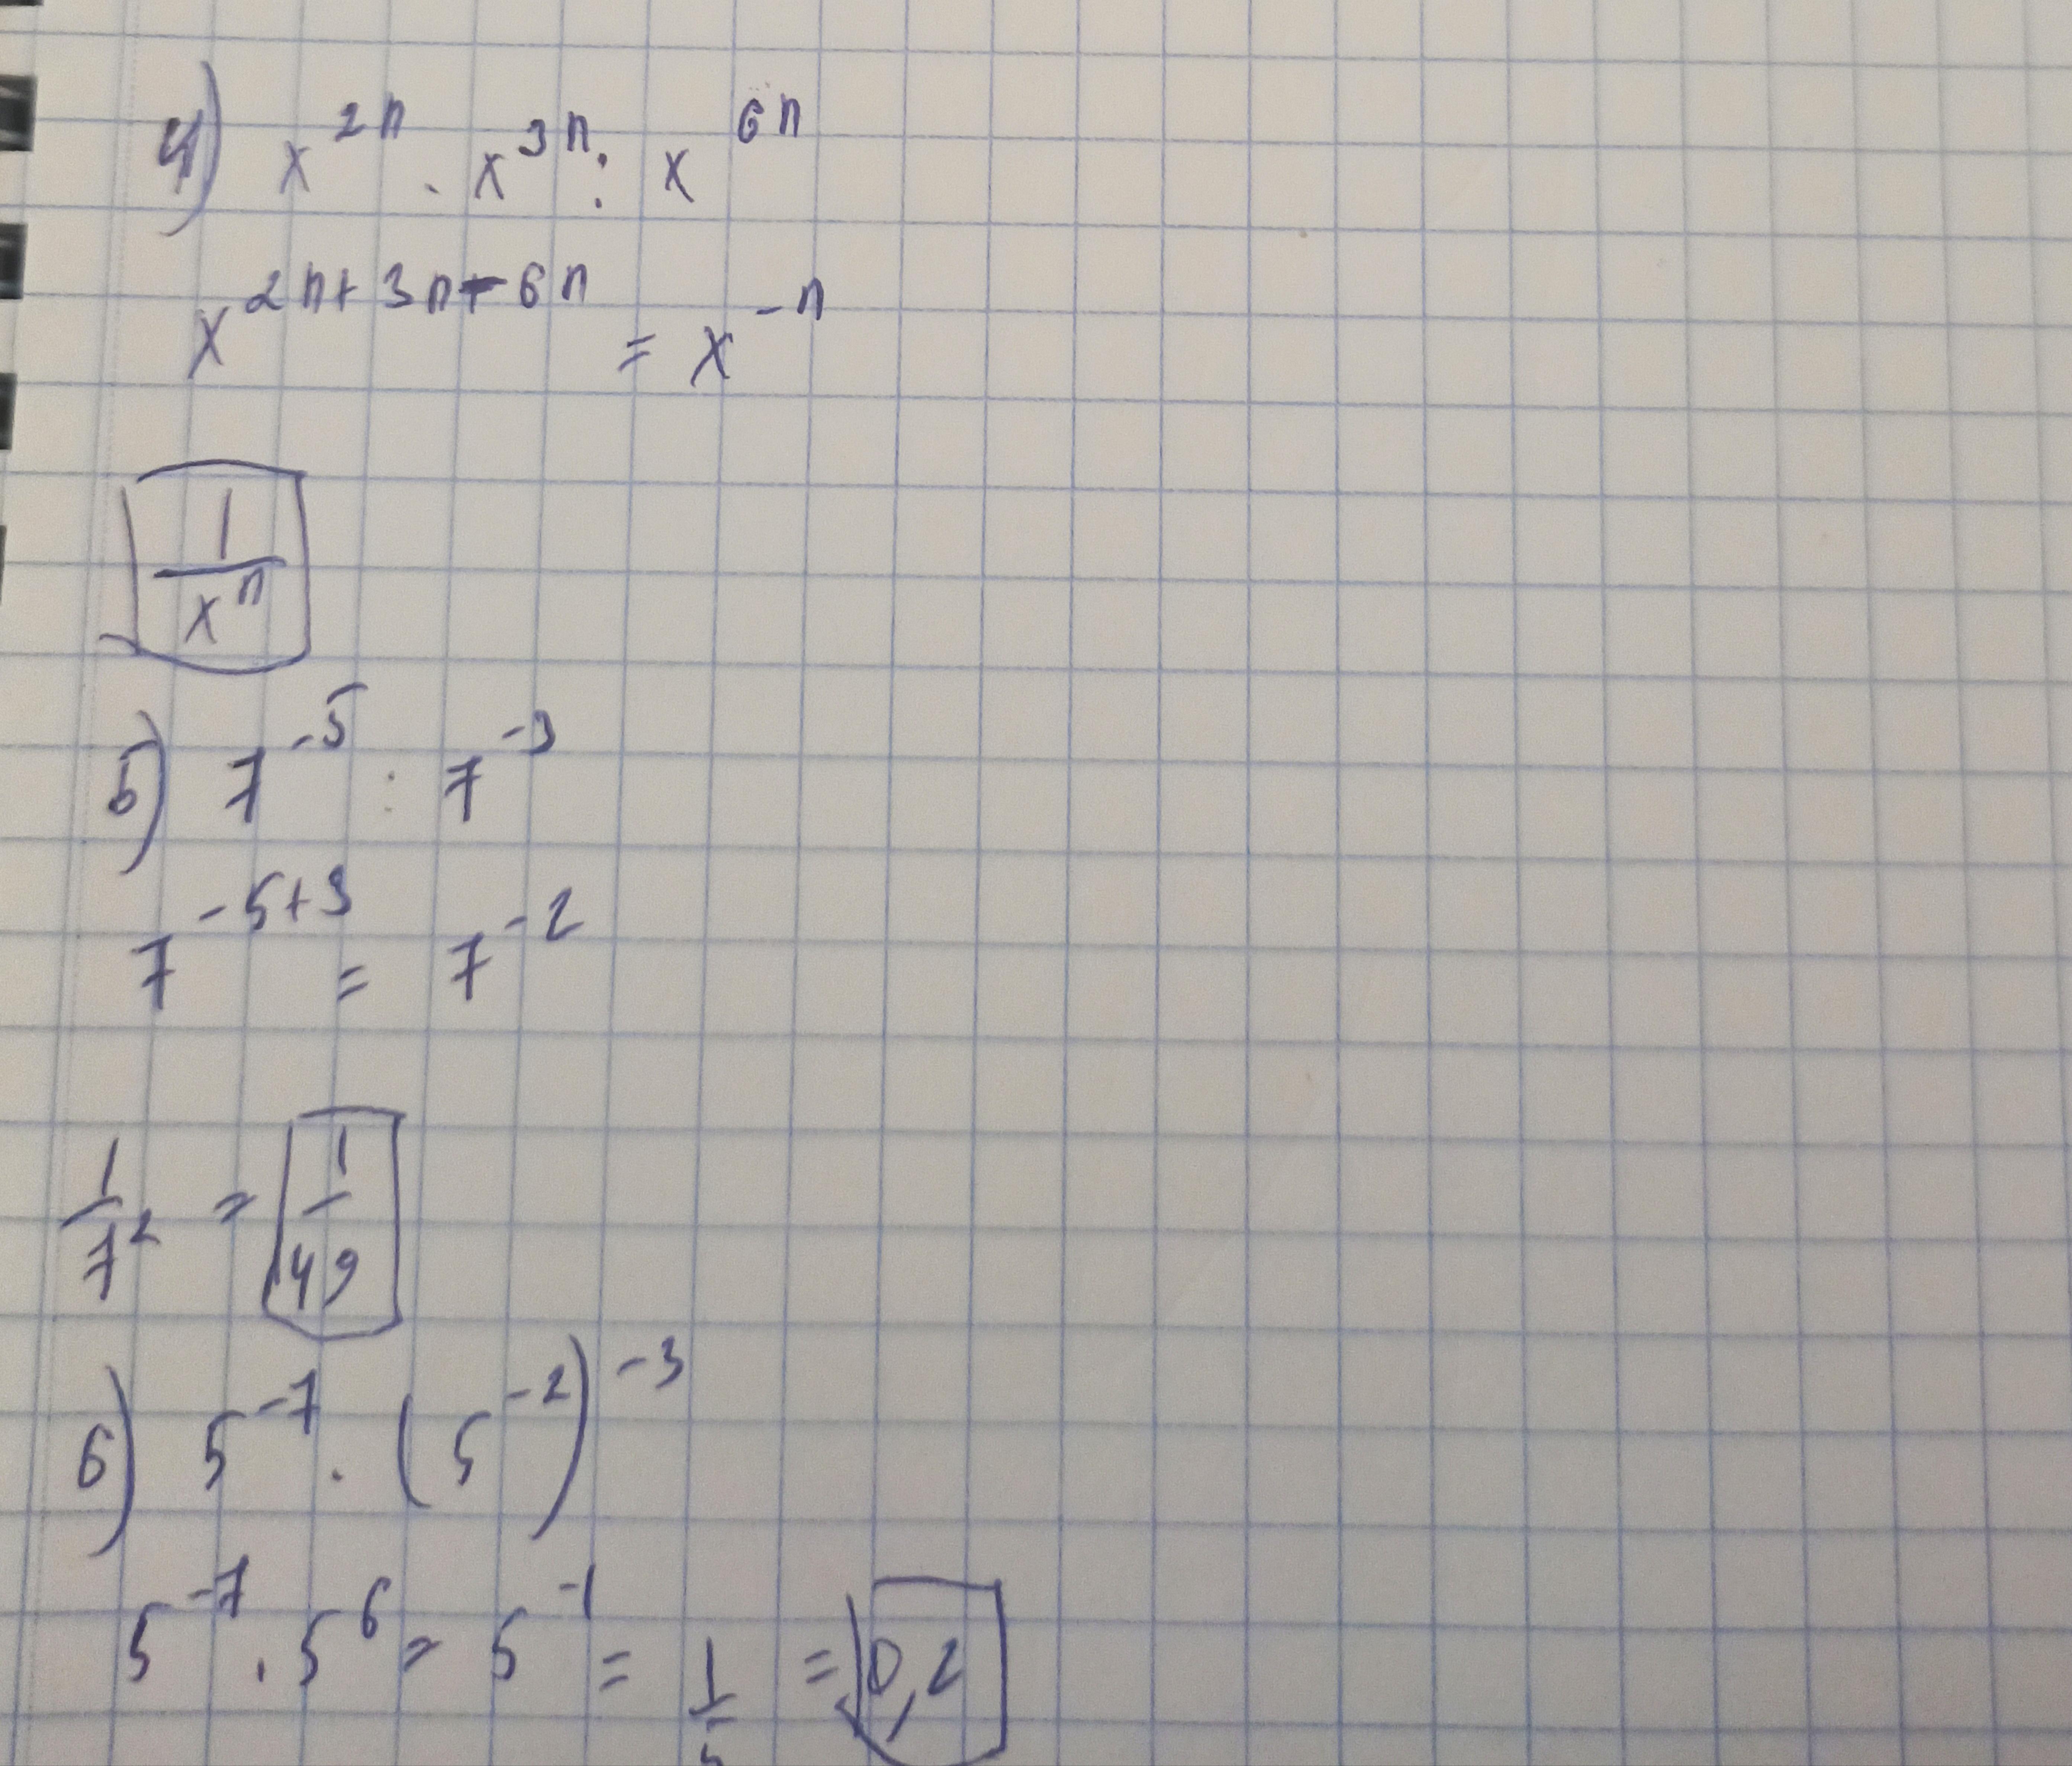 4) x^{2n} · x^{3n} : x^{6n}
x^{2n+3n-6n} = x^{-n}
1/x^n
5) 7^{-5} : 7^{-3}
7^{-5+3} = 7^{-2}
1/7^2 = 1/49
6) 5^{-7} · (5^{-2})^{-3}
5^{-7} · 5^6 = 5^{-1} = 1/5 = 0,2